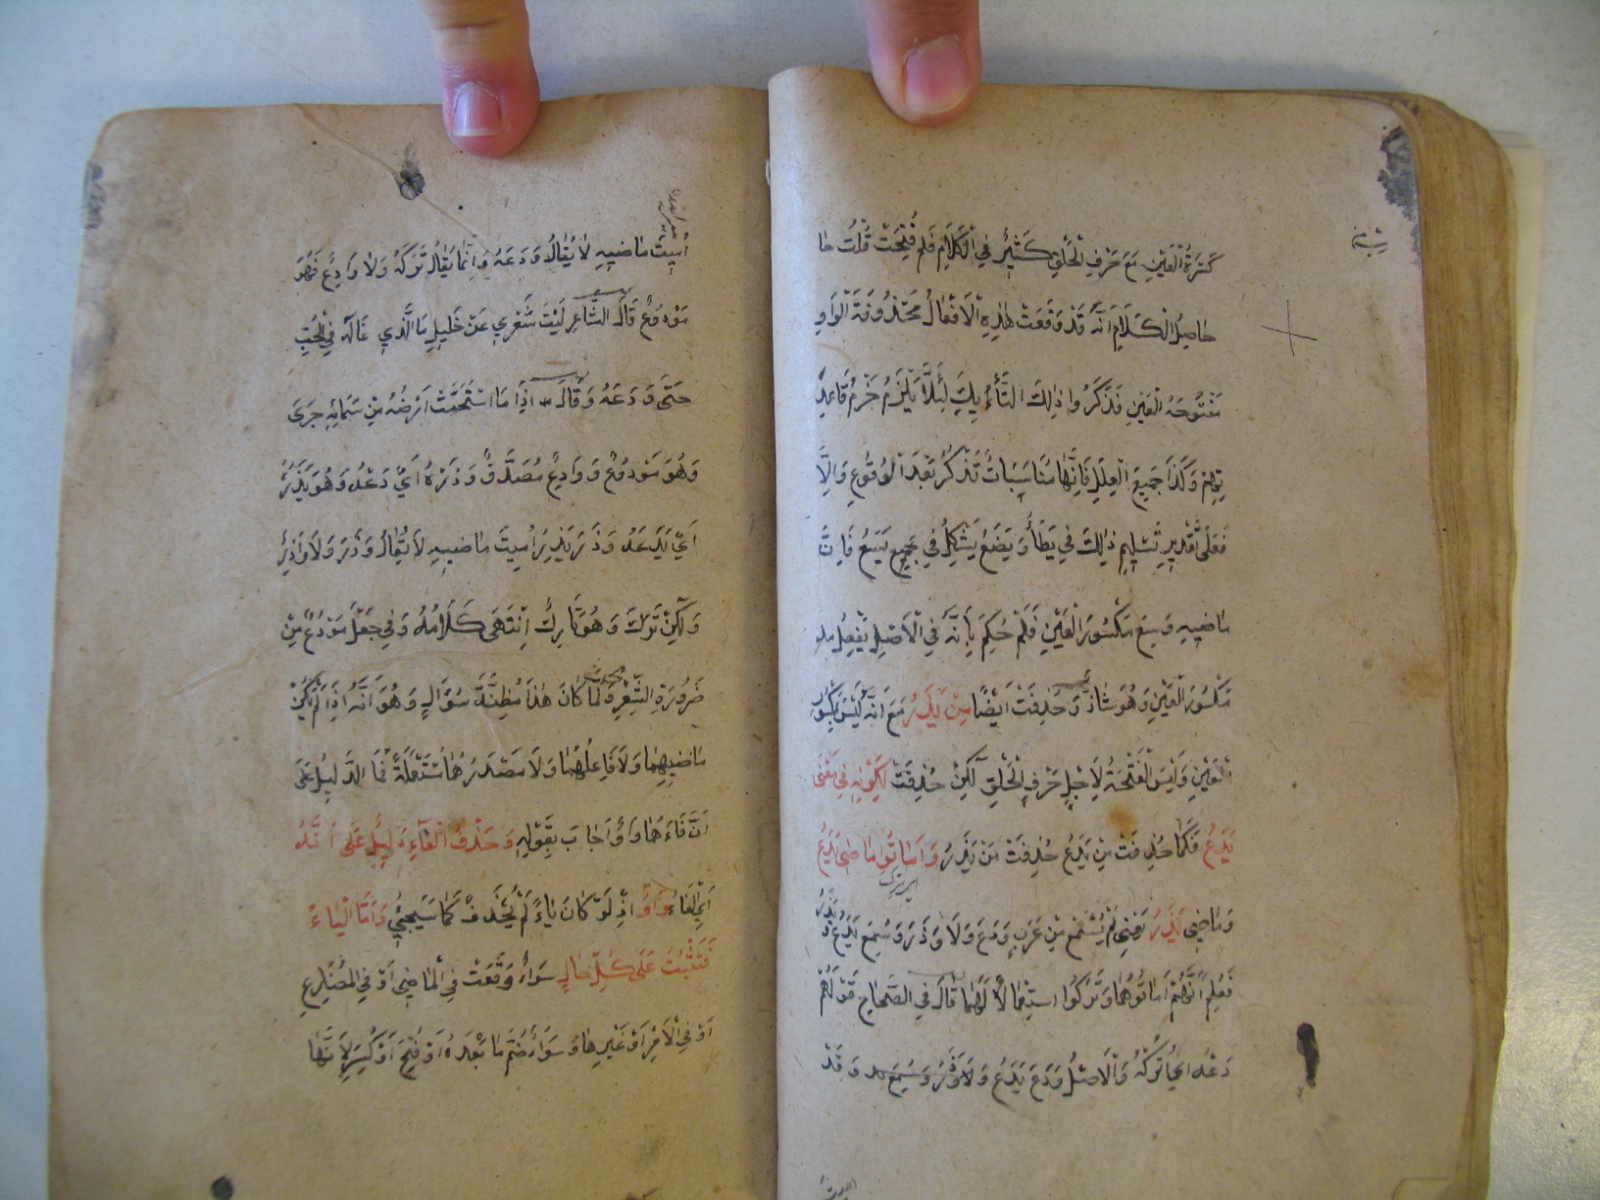 كَثْرَةُ الْعَيْنِ مَعَ حَرْفِ الْحَلْقِ كَثِيْرٌ فِي الْكَلَامِ فَلِمَ فُتِحَتْ قُلْتُ
حَاصِلُ الْكَلَامِ أَنَّهُ قَدْ وَقَعَتْ هٰذِهِ الْاَفْعَالُ مَحْذُوفَةَ الْوَاوِ
مَفْتُوحَةَ الْعَيْنِ فَذَكَرُوا ذٰلِكَ لِئَلَّا يَلْزَمَ خَرْمُ قَاعِدَ
تِهِمْ وَكَذَا جَمِيعَ الْعِلَلِ فَاِنَّهَا مُنَاسَبَاتٌ تُذْكَرُ بَعْدَ الْوُقُوعِ وَاِلَّا
فَعَلَى تَقْدِيرِ تَسْلِيمِ ذٰلِكَ فِي يَطَأُ وَيَضَعُ يَشْكِلُ فِي جَمِيعِ يَسَعُ فَاِنَّ
مَاضِيهِ وَسِعَ مَكْسُورَ الْعَيْنِ فَلِمَ حُكِمَ بِاَنَّهُ فِي الْاَصْلِ يَفْعِلُ
مَكْسُورَ الْعَيْنِ وَهُوَ شَاذٌّ وَحُذِفَتْ اَيْضًا مِنْ يَذَرُ مَعَ اَنَّهُ لَيْسَ مَكْسُورَ
الْعَيْنِ وَلَيْسَ الْفَتْحَةُ لِاَجْلِ حَرْفِ الْحَلْقِ لٰكِنْ حُذِفَتْ لِكَوْنِهِ فِي مَعْنَى
يَدَعُ فَكَمَا حُذِفَتْ مِنْ يَدَعُ حُذِفَتْ مِنْ يَذَرُ وَاَمَاتُوا مَاضِىَ يَدَعُ
وَمَاضِىَ يَذَرُ يَعْنِي لَمْ يُسْمَعْ مِنَ الْعَرَبِ وَدَعَ وَلَا وَذَرَ وَسُمِعَ يَدَعُ وَيَذَرُ
فَعُلِمَ اَنَّهُمْ اَمَاتُوهُمَا وَتَرَكُوا اسْتِعْمَالَهُمَا قَالَ فِي الصِّحَاحِ قَوْلُهُمْ
دَعْهُ اَيْ اُتْرُكْهُ وَالْاَصْلُ وَدَعَ يَدَعُ وَقَدْ
اُمِيتَ مَاضِيهِ لَا يُقَالُ وَدَعَهُ وَاِنَّمَا يُقَالُ تَرَكَهُ وَلَا وَادِعٌ فَهُوَ
مَوْدُوعٌ قَالَ الشَّاعِرُ لَيْتَ شِعْرِي عَنْ خَلِيلِي مَا الَّذِي غَالَهُ فِي الْحُبِّ
حَتَّى وَدَعَهُ وَقَالَ اِذَا مَا اسْتَحَمَّتْ اَرْضُهُ مِنْ سَمَائِهِ جَرَى
وَهُوَ مَوْدُوعٌ وَوَادِعُ مُصَدَّقٌ وَذَرْهُ اَيْ دَعْهُ وَهُوَ يَذَرُهُ
اَيْ يَدَعُهُ وَذَرَ يَذَرُ اُمِيتَ مَاضِيهِ لَا يُقَالُ وَذَرَ وَلَا وَاذِرٌ
وَلٰكِنْ تَرَكَ وَهُوَ تَارِكٌ اِنْتَهَى كَلَامُهُ وَفِي جَعْلِ مَوْدُوعٍ مِنْ
ضَرُورَةِ الشِّعْرِ وَلَمَّا كَانَ هٰذَا مَظِنَّةَ سُؤَالٍ وَهُوَ اَنَّهُ اِذَا لَمْ يَكُنْ
مَاضِيهِمَا وَلَا فَاعِلُهُمَا وَلَا مَصْدَرُهُمَا مُسْتَعْمَلَةً فَمَا الدَّلِيلُ عَلَى
اَنَّ فَاءَهُمَا وَاوٌ اَجَابَ بِقَوْلِهِ وَحَذْفُ الْفَاءِ دَلِيلٌ عَلَى اَنَّهُ
اَيِ الْفَاءَ وَاوٌ اِذْ لَوْ كَانَ يَاءً لَمْ يُحْذَفْ كَمَا سَيَجِيْءُ وَاَمَّا الْيَاءُ
فَتَثْبُتُ عَلَى كُلِّ حَالٍ سَوَاءٌ وَقَعَتْ فِي الْمَاضِى اَوْ فِي الْمُضَارِعِ
اَوْ فِي الْاَمْرِ اَوْ غَيْرِهَا وَسَوَاءٌ ضُمَّ مَا بَعْدَهُ اَوْ فُتِحَ اَوْ كُسِرَ لِاَنَّهَا